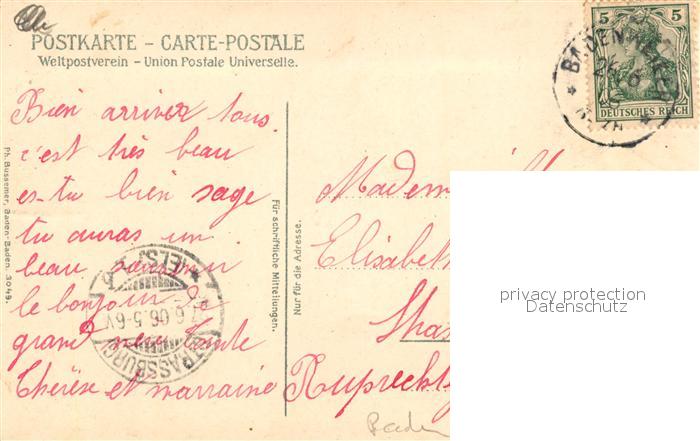 POSTKARTE – CARTE-POSTALE
Weltpostverein – Union Postale Universelle.
5 5
DEUTSCHES REICH
BADENWEILER
Bien arrivez tous
c'est très beau
es-tu bien sage
tu auras un
beau souvenir
le bonjour de
grand mère Tante
Thérèse et marraine
STRASSBURG
(ELS.)
6.06.5-6
Ph. Bussemer, Baden-Baden. 3049.
Für schriftliche Mitteilungen.
Nur für die Adresse.
Madem
Elisabet
Stras
Ruprecht
Baden
privacy protection
Datenschutz